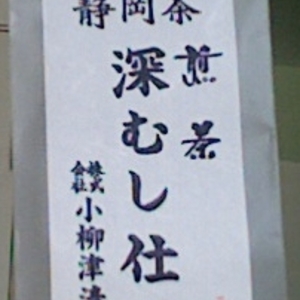 静岡茶
煎茶
深むし仕
株式会社
小柳津清